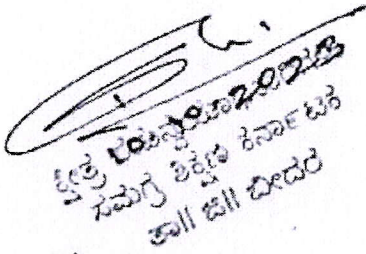 ಕ್ಷೇತ್ರ ಸಮನ್ವಯಾಧಿಕಾರಿಗಳು
ಸಮಗ್ರ ಶಿಕ್ಷಣ ಕರ್ನಾಟಕ
ತಾ॥ ಜಿ॥ ಬೀದರ